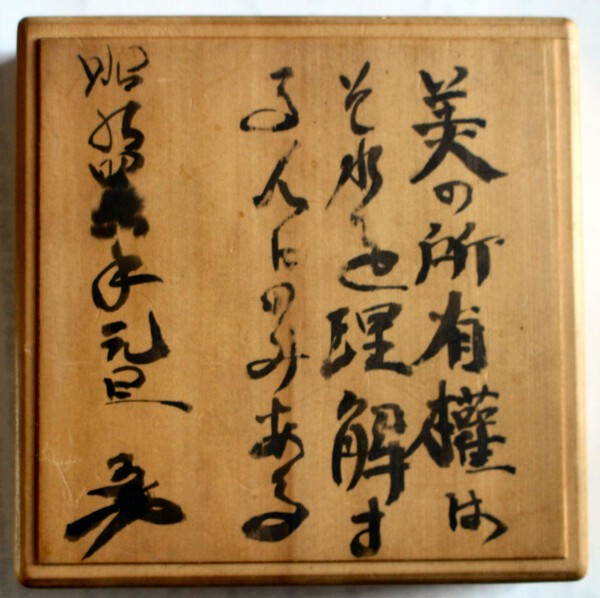 美の所有權は
それを理解す
る人にのみある
昭和四 年元旦